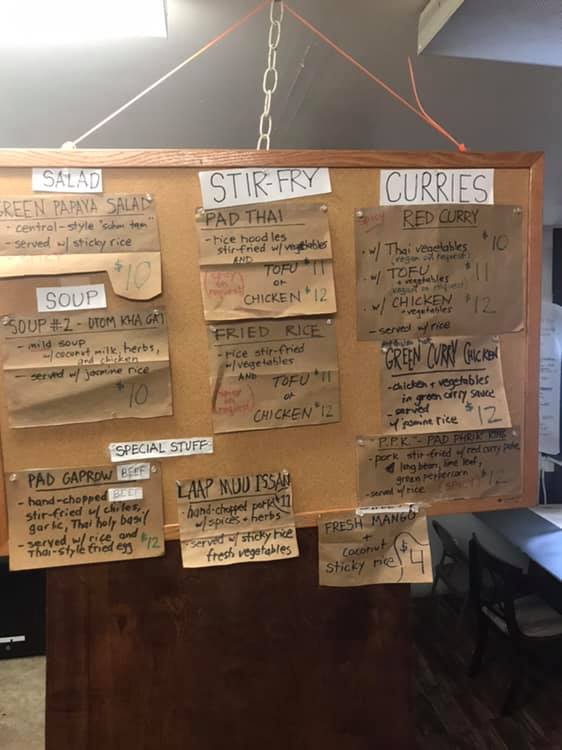 SALAD
GREEN PAPAYA SALAD
- central-style "sohm tam"
- served w/ sticky rice
$10
SOUP
SOUP #2 - DTOM KHA GAI
- mild soup
w/ coconut milk, herbs,
and chicken
- served w/ jasmine rice
$10
STIR-FRY
PAD THAI
- rice noodles
stir-fried w/ vegetables
AND
TOFU $11
or
CHICKEN $12
spicy on
request!
FRIED RICE
- rice stir-fried
w/ vegetables
AND
TOFU $11
or
CHICKEN $12
spicy on
request!
CURRIES
spicy
RED CURRY
- w/ Thai vegetables $10
(vegan on request!)
- w/ TOFU $11
+ vegetables
(vegan on request!)
- w/ CHICKEN $12
+ vegetables
- served w/ rice
GREEN CURRY CHICKEN
- chicken + vegetables
in green curry sauce
- served
w/ jasmine rice $12
P.P.K. - PAD PHRIK
- pork stir-fried w/ red curry paste,
long bean, lime leaf,
green peppercorn
- served w/ rice
SPECIAL STUFF
PAD GAPROW BEEF
- hand-chopped BEEF
stir-fried w/ chiles,
garlic, Thai holy basil
- served w/ rice and
Thai-style fried egg $12
LAAP MUU ISSAN
- hand-chopped pork $11
w/ spices + herbs
- served w/ sticky rice
fresh vegetables
FRESH MANGO
+
coconut
sticky rice $4